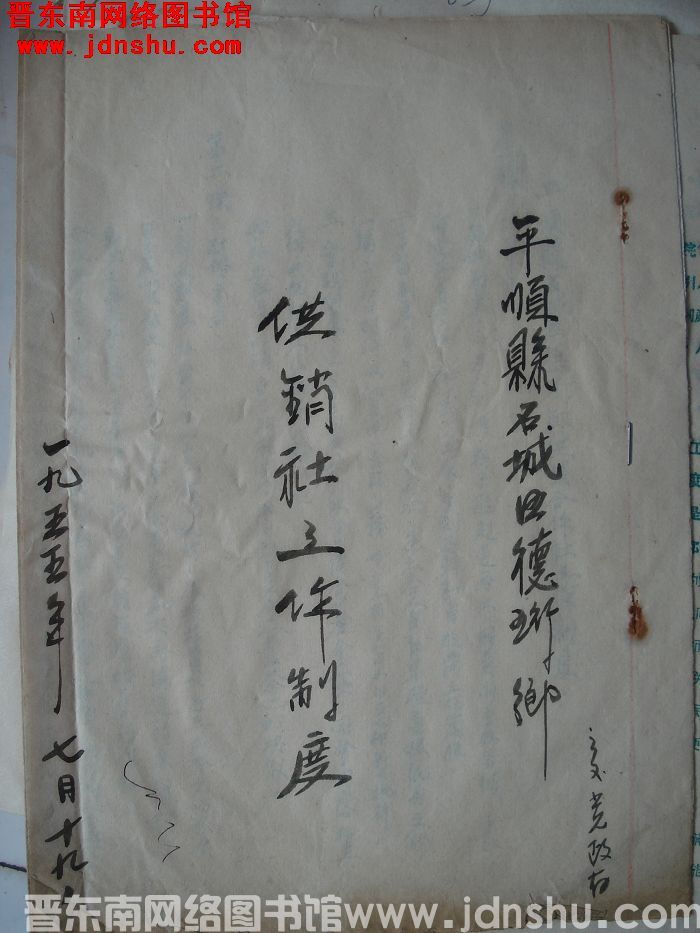 晋东南网络图书馆
www.jdnshu.com
平順縣石城区德珩鄉
供銷社工作制度
一九五五年七月十九
晋东南网络图书馆 www.jdnshu.com